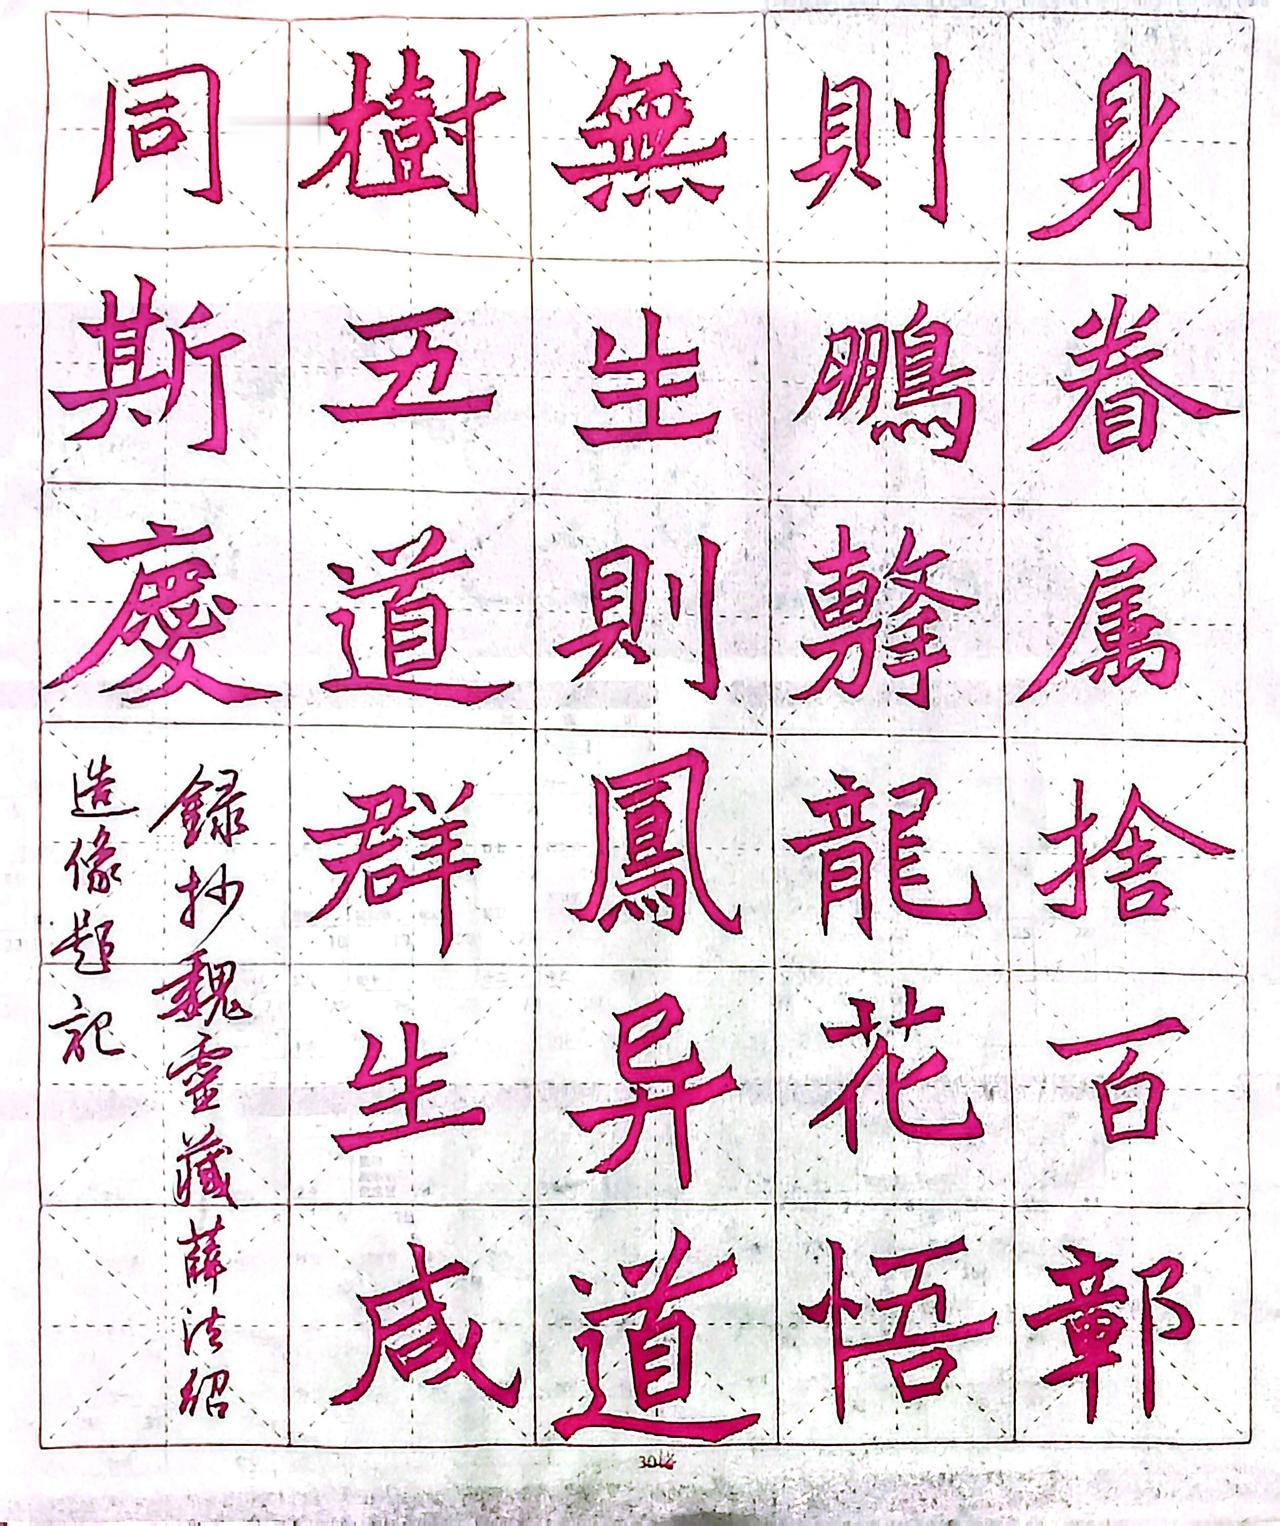 身眷属捨百鄣
則鵬擊龍花悟
無生則鳳异道
樹五道群生咸
同斯慶
録抄魏靈藏薛法紹
造像題記
30格